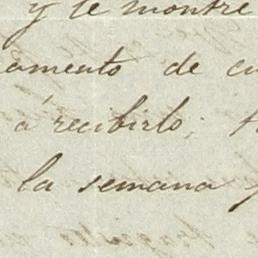 y le montre
amento de cu
á recibirlo;
la semana